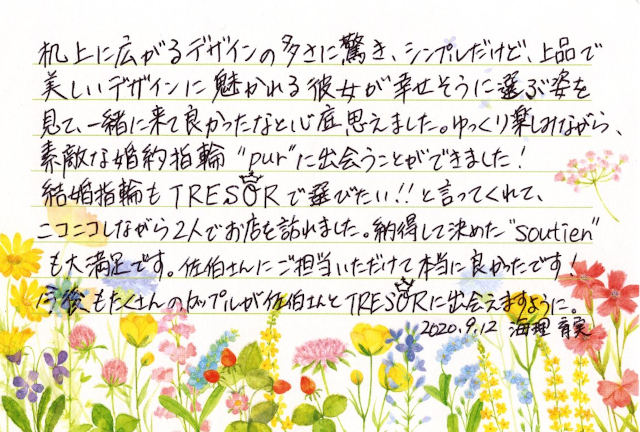 机上に広がるデザインの多さに驚き、シンプルだけど、上品で
美しいデザインに魅かれる彼女が幸せそうに選ぶ姿を
見て、一緒に来て良かったなと心底思えました。ゆっくり楽しみながら、
素敵な婚約指輪“pur”に出会うことができました!
結婚指輪もTRESORで選びたい!!と言ってくれて、
ニコニコしながら2人でお店を訪れました。納得して決めた“soutien”
も大満足です。佐伯さんにご担当いただけて本当に良かったです!
今後もたくさんのカップルが佐伯さんとTRESORに出会えますように。
2020.9.12 海理